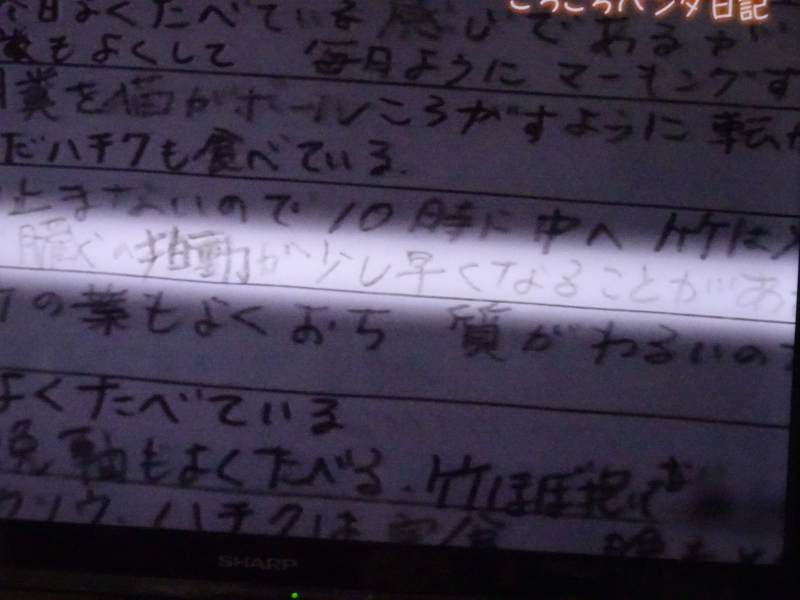 ごろごろパンダ日記
今日よくたべている感じであるが
糞もよくして 毎日ようにマーキングす
糞を猫がボールころがすように転が
だハチクも食べている.
止まないので10時に中へ 竹は
臓へ拍動が少し早くなることがあ
の葉もよくおち 質がわるいの
よくたべている
軸もよくたべる.竹ほぼ
ソウ.ハチクは
SHARP